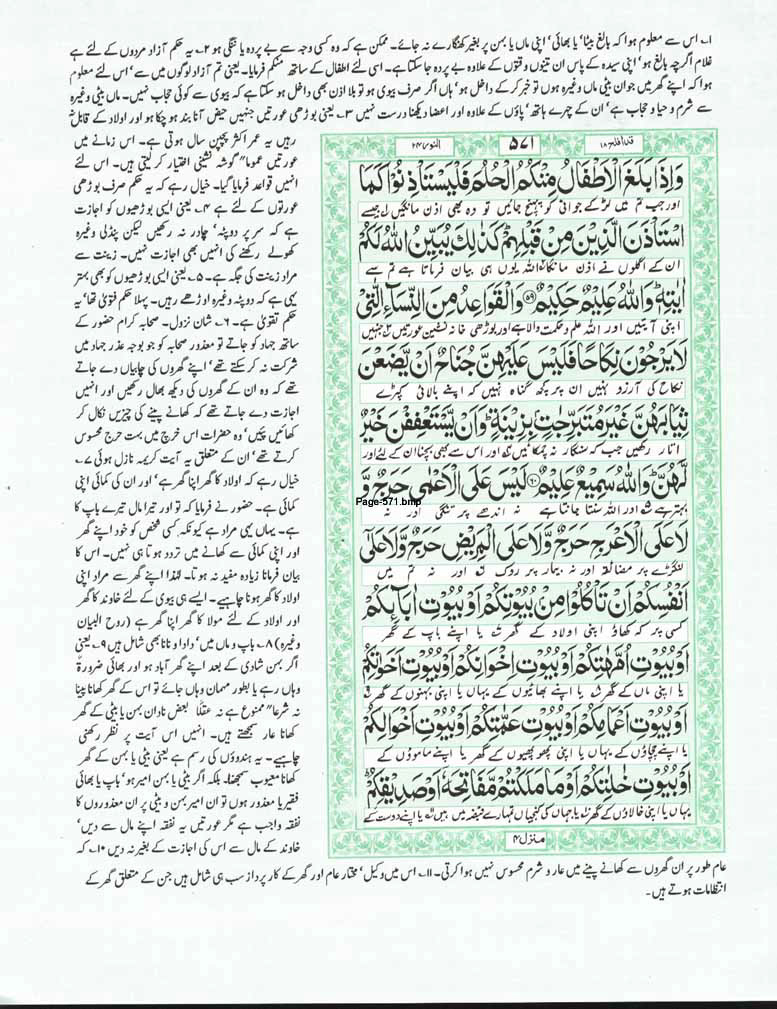 ۱۔ اس سے معلوم ہوا کہ بالغ بیٹا' یا بھائی' اپنی ماں یا بہن پر بغیر کھنگارے نہ جائے۔ ممکن ہے کہ وہ کسی وجہ سے بے پردہ یا ننگی ہو ۲۔ یہ حکم آزاد مردوں کے لئے ہے
غلام اگرچہ بالغ ہو' اپنی سیدہ کے پاس ان تینوں وقتوں کے علاوہ بے پردہ جا سکتا ہے۔ اسی لئے اطفال کے ساتھ منکم فرمایا۔ یعنی تم آزاد لوگوں میں سے' اس لئے معلوم
ہوا کہ اپنے گھر میں جوان بیٹی ماں وغیرہ ہوں تو خبر کر کے داخل ہو' ہاں اگر صرف بیوی ہو تو بلا اذن بھی داخل ہو سکتا ہے کہ بیوی سے کوئی حجاب نہیں۔ ماں بیٹی وغیرہ
سے شرم و حیا و حجاب ہے' ان کے چہرے ہاتھ' پاؤں کے علاوہ اور اعضا دیکھنا درست نہیں ۳۔ یعنی بوڑھی عورتیں جنہیں حیض آنا بند ہو چکا ہو اور اولاد کے قابل نہ
رہیں یہ عمر اکثر پچپن سال ہوتی ہے۔ اس زمانے میں
عورتیں عموما" گوشہ نشینی اختیار کر لیتی ہیں۔ اس لئے
انہیں قواعد فرمایا گیا۔ خیال رہے کہ یہ حکم صرف بوڑھی
عورتوں کے لئے ہے ۴۔ یعنی ایسی بوڑھیوں کو اجازت
ہے کہ سر پر دوپٹہ' چادر نہ رکھیں لیکن پنڈلی وغیرہ
کھولے رکھنے کی انہیں بھی اجازت نہیں۔ زینت سے
مراد زینت کی جگہ ہے۔ ۵۔ یعنی ایسی بوڑھیوں کو بھی بہتر
یہی ہے کہ دوپٹہ وغیرہ اوڑھے رہیں۔ پہلا حکم فتویٰ تھا' یہ
حکم تقویٰ ہے۔ ۶۔ شان نزول۔ صحابہ کرام حضور کے
ساتھ جہاد کو جاتے تو معذور صحابہ کو جو بوجہ عذر جہاد میں
شرکت نہ کر سکتے تھے' اپنے گھروں کی چابیاں دے جاتے
تھے کہ وہ ان کے گھروں کی دیکھ بھال رکھیں اور انہیں
اجازت دے جاتے تھے کہ کھانے پینے کی چیزیں نکال کر
کھائیں پئیں' وہ حضرات اس خرچ میں بہت حرج محسوس
کرتے تھے' ان کے متعلق یہ آیت کریمہ نازل ہوئی ۷۔
خیال رہے کہ اولاد کا گھر اپنا گھر ہے' اور ان کی کمائی اپنی
کمائی ہے۔ حضور نے فرمایا کہ تو اور تیرا مال تیرے باپ کا
ہے۔ یہاں یہی مراد ہے کیونکہ کسی شخص کو خود اپنے گھر
اور اپنی کمائی سے کھانے میں تردد ہوتا ہی نہیں۔ اس کا
بیان فرمانا زیادہ مفید نہ ہوتا۔ لہٰذا اپنے گھر سے مراد اپنی
اولاد کا گھر ہونا چاہیے۔ ایسے ہی بیوی کے لئے خاوند کا گھر
اور اولاد کے لئے مولا کا گھر اپنا گھر ہے (روح البیان
وغیرہ) ۸۔ باپ و ماں میں' دادا و نانا بھی شامل ہیں ۹۔ یعنی
اگر بہن شادی کے بعد اپنے گھر آباد ہو اور بھائی ضرورۃً
وہاں رہے یا بطور مہمان وہاں جائے تو اس کے گھر کھانا پینا
نہ شرعا" ممنوع ہے نہ عقلًا بعض نادان بہن یا بیٹی کے گھر
کھانا عار سمجھتے ہیں۔ انہیں اس آیت پر نظر رکھنی
چاہیے۔ یہ ہندوؤں کی رسم ہے یعنی بیٹی یا بہن کے گھر
کھانا معیوب سمجھنا۔ بلکہ اگر بیٹی یا بہن امیر ہو' باپ یا بھائی
فقیر یا معذور ہوں تو ان امیر بہن و بیٹی پر ان معذوروں کا
نفقہ واجب ہے مگر عورتیں یہ نفقہ اپنے مال سے دیں'
خاوند کے مال سے اس کی اجازت کے بغیر نہ دیں ۱۰۔ کہ
قد افلح ۱۸
۵۷۱
النور ۲۴
وَاِذَا بَلَغَ الْاَطْفَالُ مِنْكُمُ الْحُلُمَ فَلْيَسْتَاْذِنُوْا كَمَا
اور جب تم میں لڑکے جوانی کو پہنچ جائیں تو وہ بھی اذن مانگیں ل جیسے
اسْتَاْذَنَ الَّذِيْنَ مِنْ قَبْلِهِمْ كَذٰلِكَ يُبَيِّنُ اللّٰهُ لَكُمْ
ان کے اگلوں نے اذن مانگا اللہ یوں ہی بیان فرماتا ہے تم سے
اٰيٰتِهٖ وَاللّٰهُ عَلِيْمٌ حَكِيْمٌ ۵۹ وَالْقَوَاعِدُ مِنَ النِّسَآءِ الّٰتِيْ
اپنی آیتیں اور اللہ علم و حکمت والا ہے اور بوڑھی خانہ نشین عورتیں جنہیں
لَا يَرْجُوْنَ نِكَاحًا فَلَيْسَ عَلَيْهِنَّ جُنَاحٌ اَنْ يَّضَعْنَ
نکاح کی آرزو نہیں ان پر کچھ گناہ نہیں کہ اپنے بالائی کپڑے
ثِيَابَهُنَّ غَيْرَ مُتَبَرِّجٰتٍۭ بِزِيْنَةٍ وَاَنْ يَّسْتَعْفِفْنَ خَيْرٌ
اتار رکھیں جب کہ سنگار نہ چمکائیں اور اس سے بھی بچنا ان کے لئے اور
لَّهُنَّ وَاللّٰهُ سَمِيْعٌ عَلِيْمٌ ۶۰ لَيْسَ عَلَى الْاَعْمٰى حَرَجٌ وَّ
بہتر ہے اور اللہ سنتا جانتا ہے نہ اندھے پر تنگی اور نہ
Page-571.bmp
لَا عَلَى الْاَعْرَجِ حَرَجٌ وَّلَا عَلَى الْمَرِيْضِ حَرَجٌ وَّلَا عَلٰٓى
لنگڑے پر مضائقہ اور نہ بیمار پر روک اور نہ تم میں
اَنْفُسِكُمْ اَنْ تَاْكُلُوْا مِنْۢ بُيُوْتِكُمْ اَوْ بُيُوْتِ اٰبَآئِكُمْ
کسی پر کہ کھاؤ اپنی اولاد کے گھر یا اپنے باپ کے گھر
اَوْ بُيُوْتِ اُمَّهٰتِكُمْ اَوْ بُيُوْتِ اِخْوَانِكُمْ اَوْ بُيُوْتِ اَخَوٰتِكُمْ
یا اپنی ماں کے گھر یا اپنے بھائیوں کے یہاں یا اپنی بہنوں کے گھر
اَوْ بُيُوْتِ اَعْمَامِكُمْ اَوْ بُيُوْتِ عَمّٰتِكُمْ اَوْ بُيُوْتِ اَخْوَالِكُمْ
یا اپنے چچاؤں کے یہاں یا اپنی پھوپھیوں کے گھر یا اپنے ماموؤں کے
اَوْ بُيُوْتِ خٰلٰتِكُمْ اَوْ مَا مَلَكْتُمْ مَّفَاتِحَهٗ اَوْ صَدِيْقِكُمْ
یہاں یا اپنی خالاؤں کے گھر یا جہاں کی کنجیاں تمہارے قبضہ میں ہیں یا اپنے دوست کے
منزل ۴
عام طور پر ان گھروں سے کھانے پینے میں عار و شرم محسوس نہیں ہوا کرتی۔ ۱۱۔ اس میں وکیل' مختار عام اور گھر کے کار پرداز سب ہی شامل ہیں جن کے متعلق گھر کے
انتظامات ہوتے ہیں۔